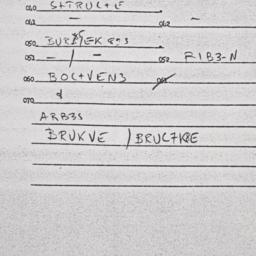 040 SHTRUC+E
041 – 042 –
050 BURZTEK 893
051 – / – 052 RIB3-N
060 BOC+VEN3 061
070
ARB3S
BRUKVE / BRUC7KBE